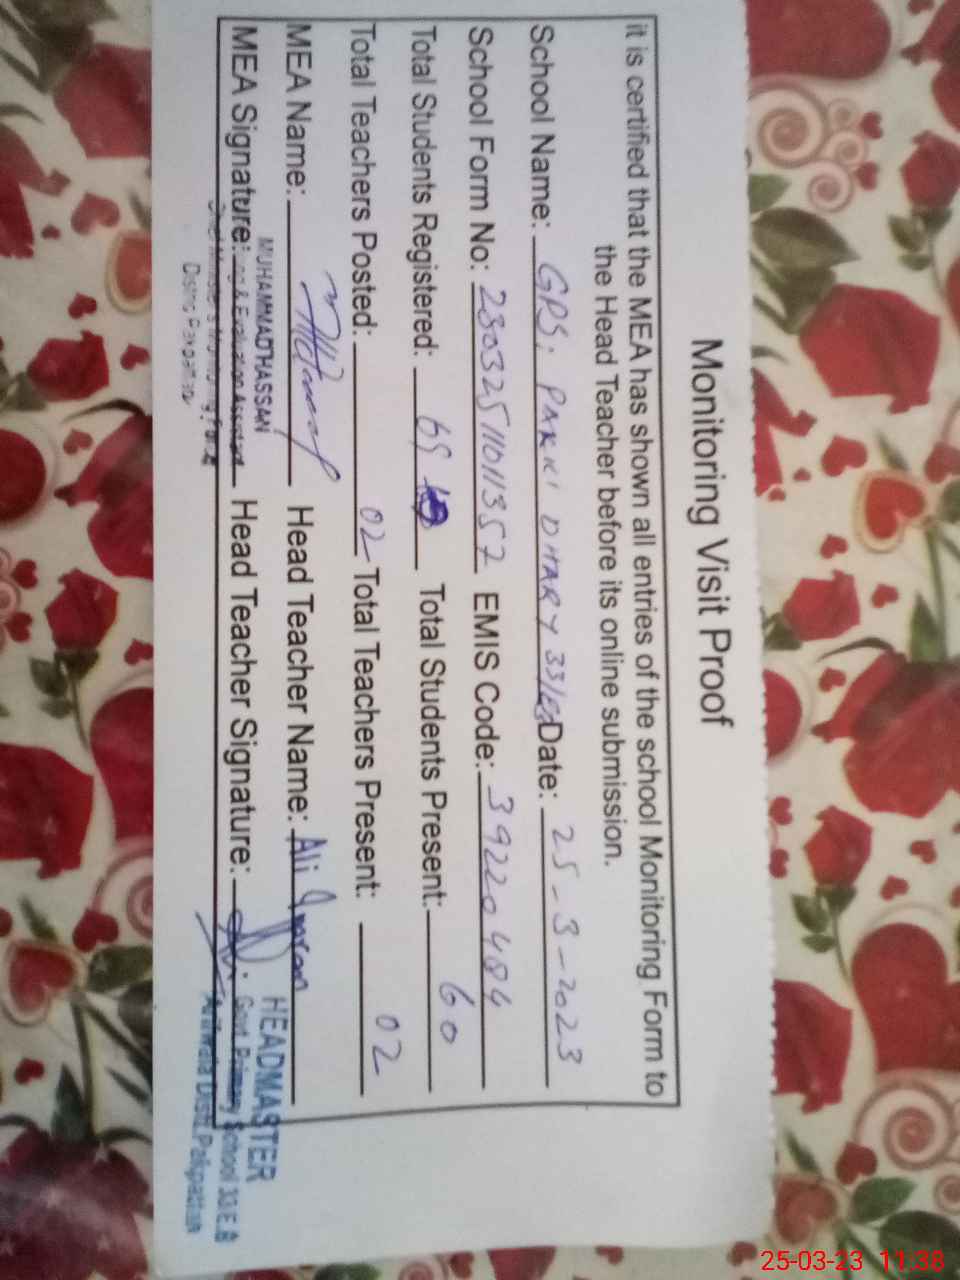 Monitoring Visit Proof
it is certified that the MEA has shown all entries of the school Monitoring Form to
the Head Teacher before its online submission.
School Name: GPS. PAKKI DHARY 33/EB Date: 25-3-2023
School Form No: EMIS Code: 39220484
Total Students Registered: 69 Total Students Present: 60
Total Teachers Posted: 02 Total Teachers Present: 02
MEA Name: Head Teacher Name: Ali
MUHAMMAD HASSAN
HEADMASTER
MEA Signature: Head Teacher Signature:
Monitoring & Evaluation Assistant
Govt. Primary School 33/E.B
Chief Minister's Monitoring Force
Arifwala Distt. Pakpattan
District Pakpattan
25-03-23 11:38